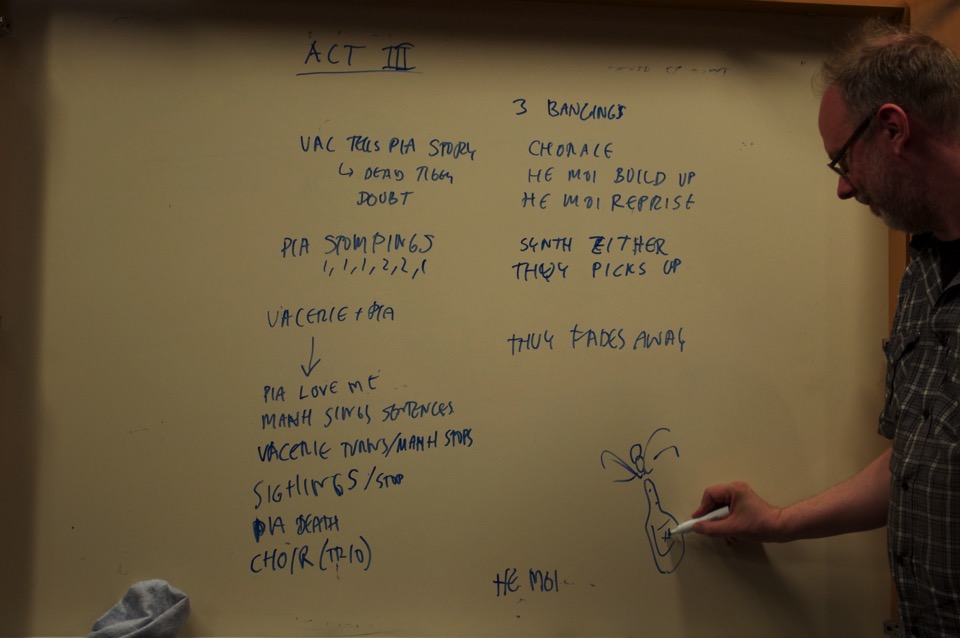 ACT III
VAL TELLS PIA STORY
↳ DEAD TIGER
DOUBT
PIA STOMPINGS
1, 1, 1, 2, 2, 1
VALERIE + PIA
PIA LOVE ME
MANH SINGS SENTENCES
VALERIE TURNS/MANH STOPS
SIGHINGS/STOP
PIA DEATH
CHOIR (TRIO)
3 BANGINGS
CHORALE
HE MOI BUILD UP
HE MOI REPRISE
SYNTH ZITHER
THUY PICKS UP
THUY FADES AWAY
HE MOI